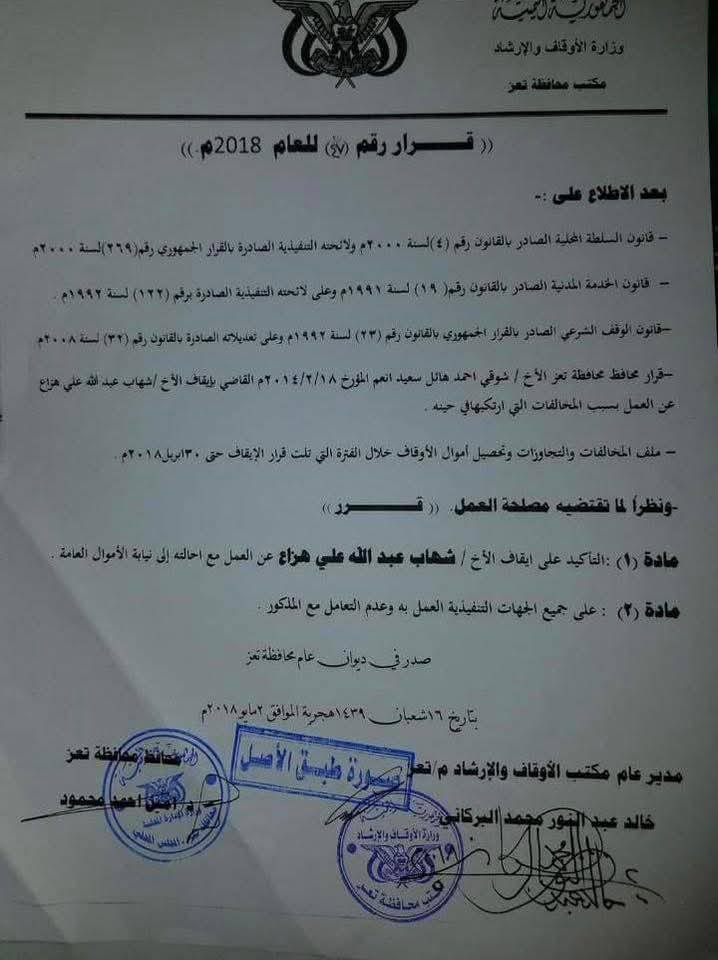 الجمهورية اليمنية
وزارة الأوقاف والإرشاد
مكتب محافظة تعز
(( قـــــــرار رقم (٤٧) للعام 2018م ))
بعد الاطلاع على :-
– قانون السلطة المحلية الصادر بالقانون رقم (٤) لسنة ٢٠٠٠م ولائحته التنفيذية الصادرة بالقرار الجمهوري رقم(٢٦٩) لسنة ٢٠٠٠م
– قانون الخدمة المدنية الصادر بالقانون رقم( ١٩) لسنة ١٩٩١م وعلى لائحته التنفيذية الصادرة برقم (١٢٢) لسنة ١٩٩٢م .
–قانون الوقف الشرعي الصادر بالقرار الجمهوري بالقانون رقم (٢٣) لسنة ١٩٩٢م وعلى تعديلاته الصادرة بالقانون رقم (٣٢) لسنة ٢٠٠٨م
–قرار محافظ محافظة تعز الأخ / شوقي احمد هائل سعيد انعم المؤرخ ٢٠١٤/٢/١٨م القاضي بإيقاف الأخ /شهاب عبد الله علي هزاع
عن العمل بسبب المخالفات التي ارتكبهافي حينه .
– ملف المخالفات والتجاوزات وتحصيل أموال الأوقاف خلال الفترة التي تلت قرار الإيقاف حتى ٣٠ابريل٢٠١٨م .
-ونظراً لما تقتضيه مصلحة العمل. (( قـــــــرر ))
مادة (١) :التأكيد على ايقاف الأخ / شهاب عبد الله علي هزاع عن العمل مع احالته إلى نيابة الأموال العامة .
مادة (٢) : على جميع الجهات التنفيذية العمل به وعدم التعامل مع المذكور .
صدر في ديوان عام محافظة تعز
بتاريخ ١٦شعبان ١٤٣٩هجرية الموافق ٢مايو٢٠١٨م
مدير عام مكتب الأوقاف والإرشاد م/تعز
خالد عبد النور محمد البركاني
محافظ محافظة تعز
د. امين احمد محمود
صورة طبق الأصل
وزارة الأوقاف والإرشاد
مكتب محافظة تعز
وزارة الإدارة المحلية